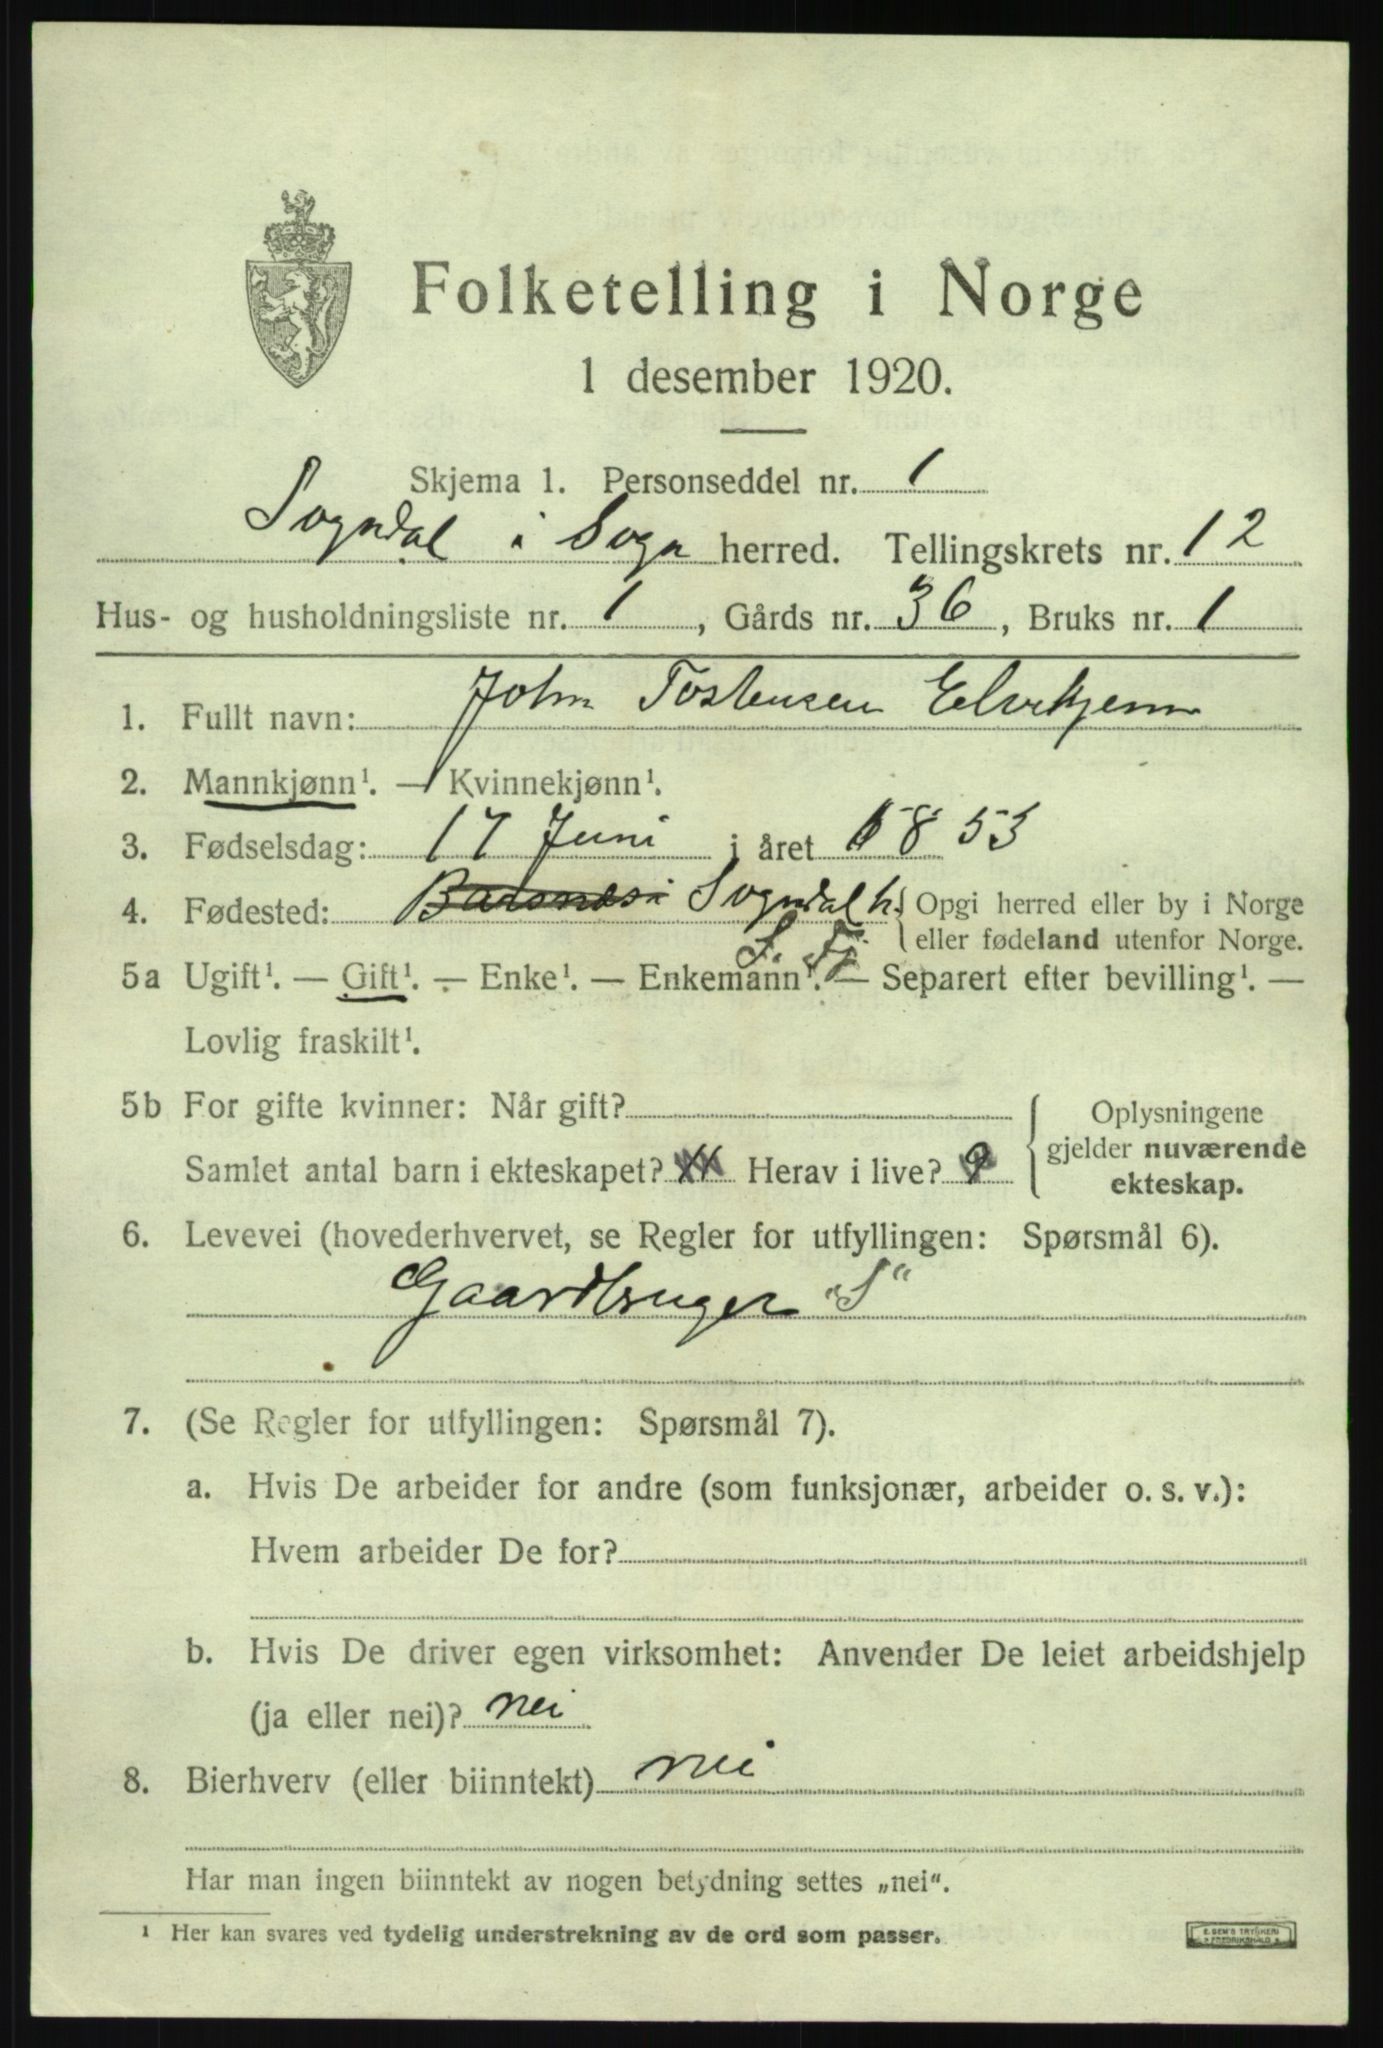 Folketelling i Norge
1 desember 1920.
Skjema 1. Personseddel nr. 1
Sogndal i Sogn herred. Tellingskrets nr. 12
Hus- og husholdningsliste nr. 1, Gårds nr. 36, Bruks nr. 1
1. Fullt navn: John Tostensen Elvekjenn
2. Mannkjønn¹. — Kvinnekjønn¹.
3. Fødselsdag: 17 Juni i året 1853
4. Fødested: Barsnes i Sogndal h. { Opgi herred eller by i Norge
eller fødeland utenfor Norge.
S. Fj.
5a Ugift¹. — Gift¹. — Enke¹. — Enkemann¹. — Separert efter bevilling¹. —
Lovlig fraskilt¹.
5b For gifte kvinner: Når gift?
Samlet antal barn i ekteskapet? 11 Herav i live? 9
Oplysningene
gjelder nuværende
ekteskap.
6. Levevei (hovederhvervet, se Regler for utfyllingen: Spørsmål 6).
Gaardbruger „S“
7. (Se Regler for utfyllingen: Spørsmål 7).
a. Hvis De arbeider for andre (som funksjonær, arbeider o. s. v.):
Hvem arbeider De for?
b. Hvis De driver egen virksomhet: Anvender De leiet arbeidshjelp
(ja eller nei)? nei
8. Bierhverv (eller biinntekt) nei
Har man ingen biinntekt av nogen betydning settes „nei“.
¹ Her kan svares ved tydelig understrekning av de ord som passer.
E. SEM'S TRYKKERI
FREDRIKSHALD